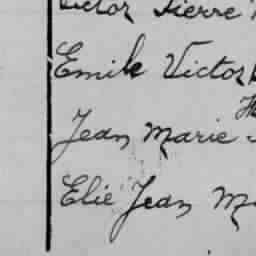 Victor Pierre
Emile Victor
Jean Marie
Elie Jean